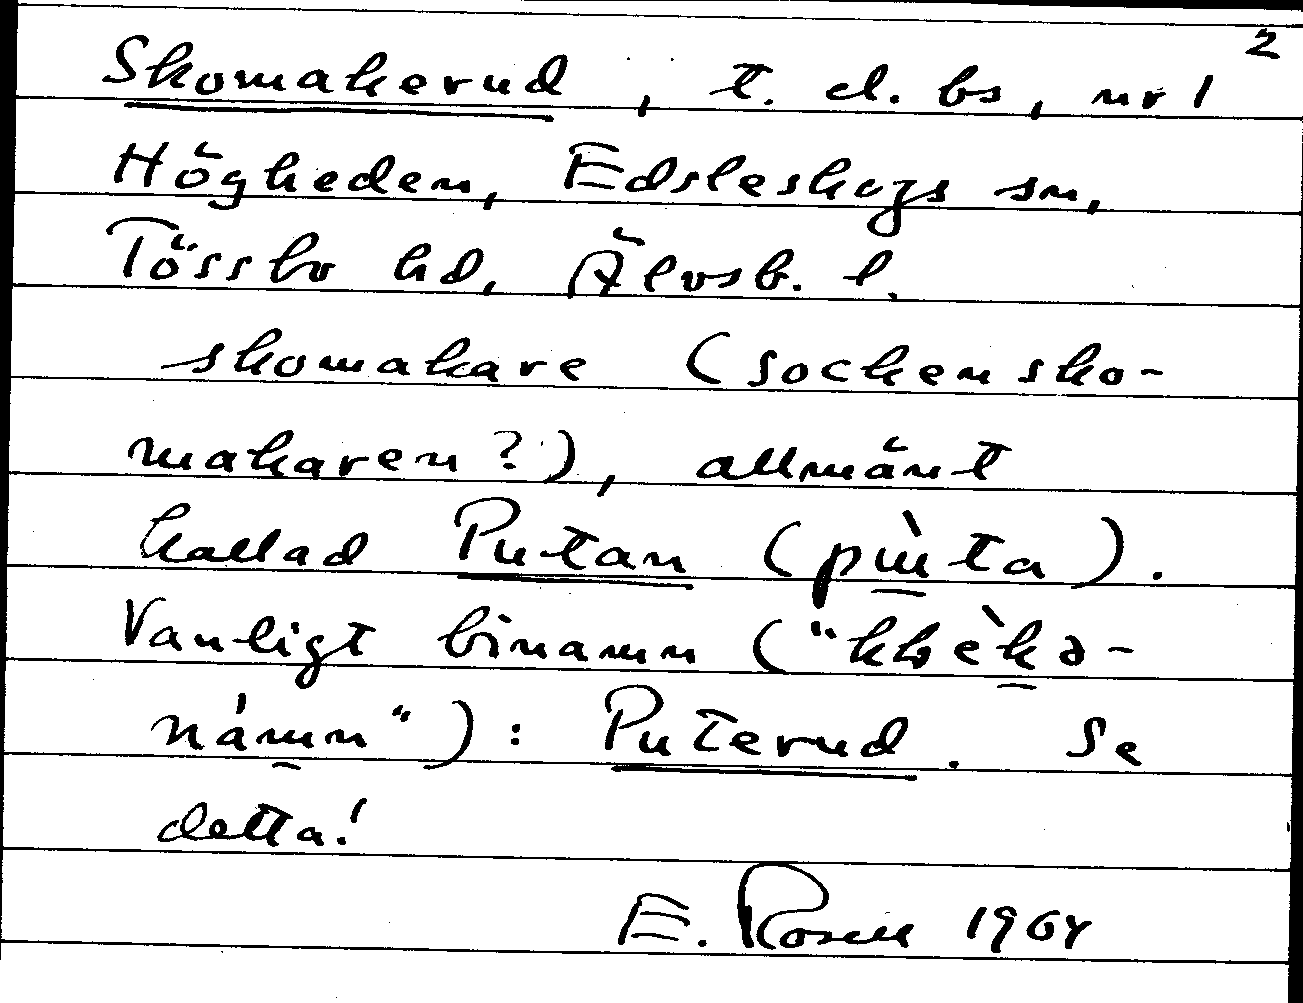 2
Skomakerud, t. el. bs, nr 1
Högheden, Edsleskogs sn,
Tössbo hd, Älvsb. l.
skomakare (sockensko-
makaren?), allmänt
kallad Putan (pùta).
Vanligt binamn ("
námn"): Puterud. Se
detta!
E. Rosell